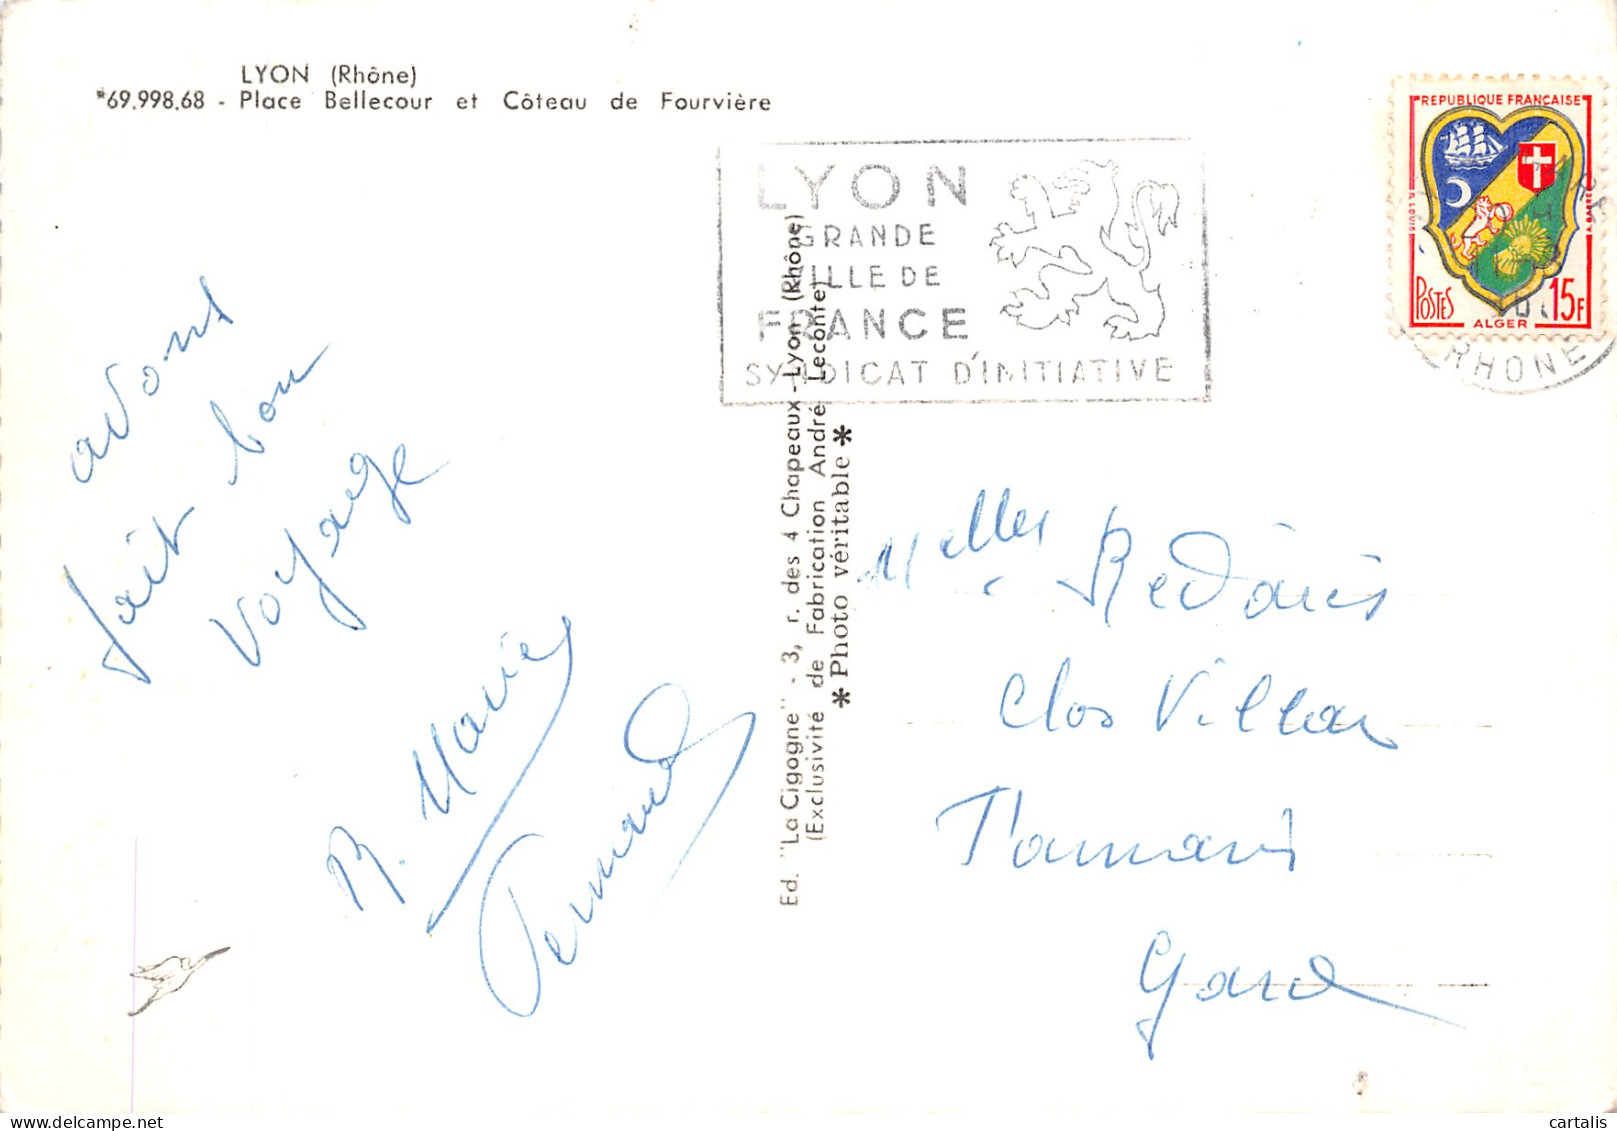 LYON (Rhône)
*69.998.68 - Place Bellecour et Côteau de Fourvière
LYON
GRANDE
VILLE DE
FRANCE
SYNDICAT D'INITIATIVE
REPUBLIQUE FRANÇAISE
POSTES 15F
ALGER
RHONE
avons
fait bon
voyage
R. Marie
Fernand
Ed. "La Cigogne" - 3, r. des 4 Chapeaux - Lyon (Rhône)
(Exclusivité de Fabrication André Leconte)
* Photo véritable *
Melles Redarès
Clos Villar
Gard
cartalis